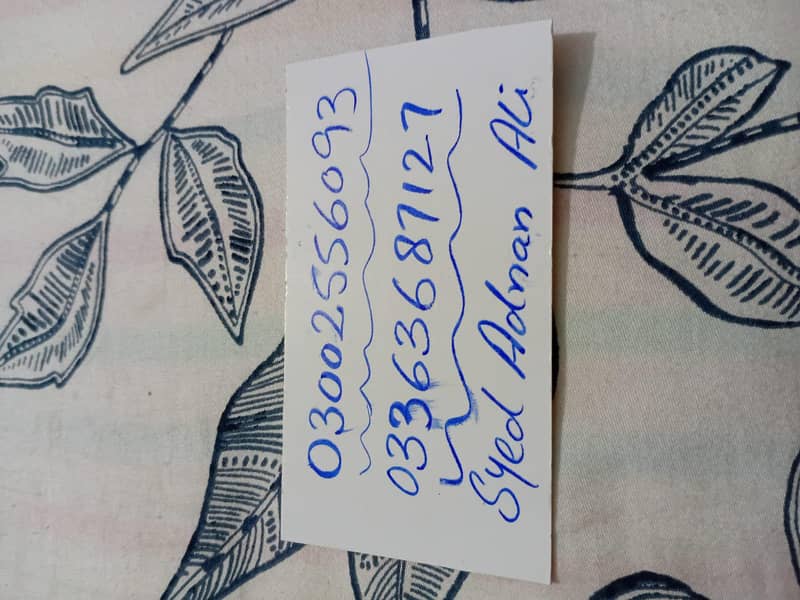 03002556093
03363687127
Syed Adnan Ali